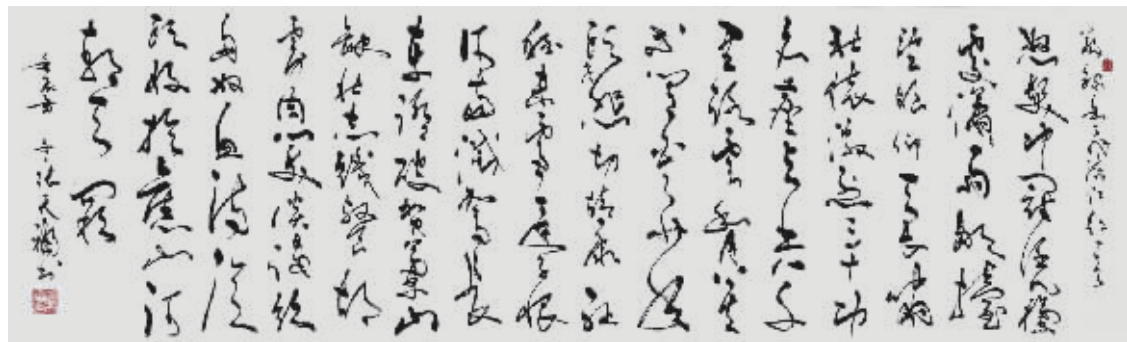 怒髮冲冠凭欄
處瀟瀟雨歇抬
望眼仰天長嘯
壯懷激烈三十功
名塵與土八千
里路雲和月莫
等閒白了少年
頭空悲切靖康恥
猶未雪臣子恨
何時滅駕長
車踏破賀蘭山
缺壯志饑餐胡
虜肉笑談渴飲
匈奴血待從
頭收拾舊山河
朝天闕